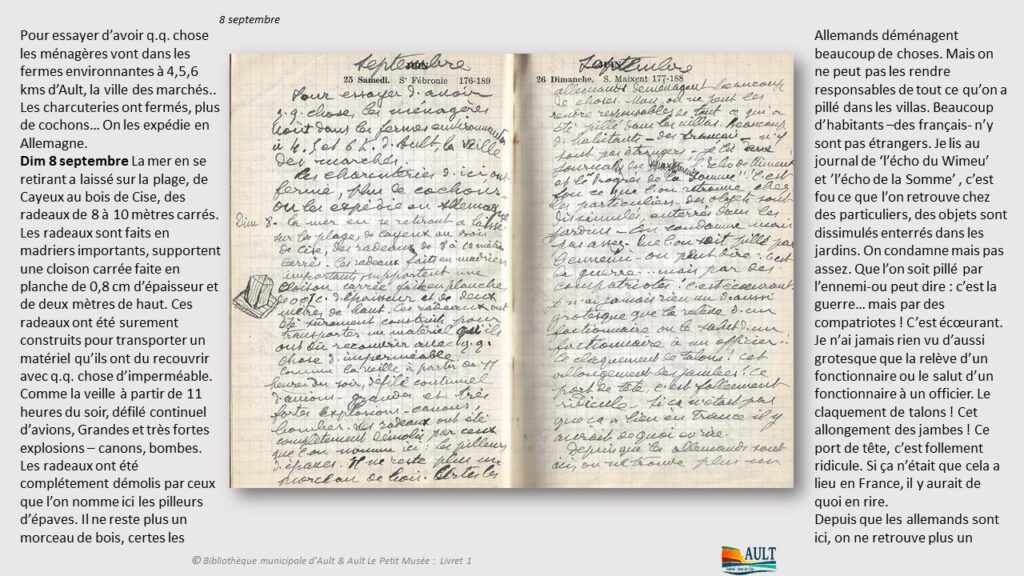 8 septembre
Pour essayer d’avoir q.q. chose
les ménagères vont dans les
fermes environnantes à 4,5,6
kms d’Ault, la ville des marchés..
Les charcuteries ont fermés, plus
de cochons… On les expédie en
Allemagne.
Dim 8 septembre La mer en se
retirant a laissé sur la plage, de
Cayeux au bois de Cise, des
radeaux de 8 à 10 mètres carrés.
Les radeaux sont faits en
madriers importants, supportent
une cloison carrée faite en
planche de 0,8 cm d’épaisseur et
de deux mètres de haut. Ces
radeaux ont été surement
construits pour transporter un
matériel qu’ils ont du recouvrir
avec q.q. chose d’imperméable.
Comme la veille à partir de 11
heures du soir, défilé continuel
d’avions, Grandes et très fortes
explosions – canons, bombes.
Les radeaux ont été
complétement démolis par ceux
que l’on nomme ici les pilleurs
d’épaves. Il ne reste plus un
morceau de bois, certes les
Septembre
25 Samedi. Sᵉ Fébronie 176-189
Pour essayer d'avoir
q.q. chose, les ménagères
vont dans les fermes environnantes
à 4. 5 et 6 k. d'Ault, la veille
des marchés.
Les charcuteries d'ici ont
fermé, plus de cochons
on les expédie en Allemagne
Dim 8 - la mer en se retirant a laissé
sur la plage, de Cayeux au bois
de Cise, des radeaux de 8 à 10 mètres
carrés. Les radeaux faits en madriers
importants, supportent une
cloison carrée faite en planche
d'épaisseur et de deux
mètres de haut. Ces radeaux ont
été surement construits pour
transporter un matériel qu'ils
ont dû recouvrir avec q.q.
chose d'imperméable
Comme la veille à partir de 11
heures du soir, défilé continuel
d'avions. Grandes et très
fortes explosions - canons,
bombes. Les radeaux ont été
complètement démolis par ceux
que l'on nomme ici les pilleurs
d'épaves. Il ne reste plus un
morceau de bois. Certes les
Septembre
26 Dimanche. S. Maixent 177-188
allemands déménagent beaucoup
de choses. Mais on ne peut les
rendre responsables de tout ce qui a
été pillé dans les villas. Beaucoup
d'habitants - des français - n'y
sont pas étrangers - je lis aux
journaux
et le progrès de la Somme". C'est
fou ce que l'on retrouve chez
les particuliers, des objets sont
dissimulés, enterrés dans les
jardins - On condamne mais
pas assez. Que l'on soit pillé par
l'ennemi - on peut dire : c'est
la guerre... mais par des
compatriotes ! c'est écœurant
Je n'ai jamais rien vu d'aussi
grotesque que la relève d'un
fonctionnaire ou le salut d'un
fonctionnaire à un officier.
le claquement de talons ! cet
allongement des jambes ! ce
port de tête, c'est follement
ridicule. Si ça n'était pas
que ça a lieu en France il y
aurait de quoi en rire.
Depuis que les allemands sont
ici, on ne retrouve plus un
Allemands déménagent
beaucoup de choses. Mais on
ne peut pas les rendre
responsables de tout ce qu’on a
pillé dans les villas. Beaucoup
d’habitants –des français- n’y
sont pas étrangers. Je lis au
journal de ‘l’écho du Wimeu’
et ’l’écho de la Somme’ , c’est
fou ce que l’on retrouve chez
des particuliers, des objets sont
dissimulés enterrés dans les
jardins. On condamne mais pas
assez. Que l’on soit pillé par
l’ennemi-ou peut dire : c’est la
guerre… mais par des
compatriotes ! C’est écœurant.
Je n’ai jamais rien vu d’aussi
grotesque que la relève d’un
fonctionnaire ou le salut d’un
fonctionnaire à un officier. Le
claquement de talons ! Cet
allongement des jambes ! Ce
port de tête, c’est follement
ridicule. Si ça n’était que cela a
lieu en France, il y aurait de
quoi en rire.
Depuis que les allemands sont
ici, on ne retrouve plus un
© Bibliothèque municipale d’Ault & Ault Le Petit Musée : Livret 1
AULT